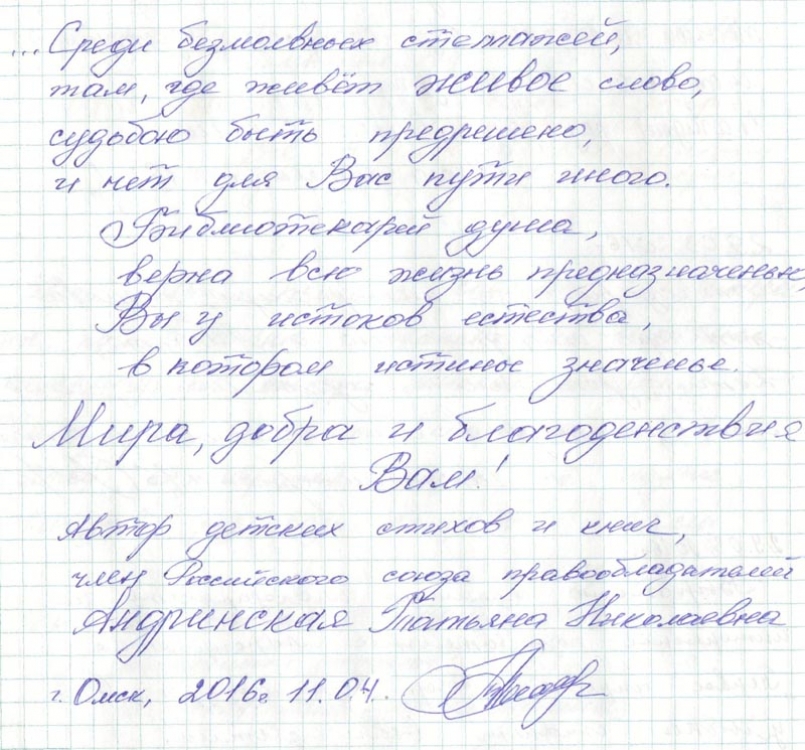 ...Среди безмолвных стеллажей,
там, где живёт живое слово,
судьбою быть предрешено,
и нет для Вас пути иного.
Библиотекарей душа,
верна всю жизнь предназначенью,
Вы у истоков естества,
в котором истины значенье.
Мира, добра и благоденствия
Вам!
Автор детских стихов и книг,
член Российского союза правообладателей
Андринская Татьяна Николаевна
г. Омск, 2016г. 11.04.